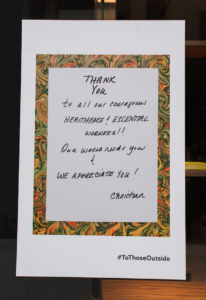 THANK
YOU
to all our courageous
HEALTHCARE & ESSENTAL
WORKERS!!
Our world needs you
&
WE APPRECIATE YOU!
Christian
#ToThoseOutside